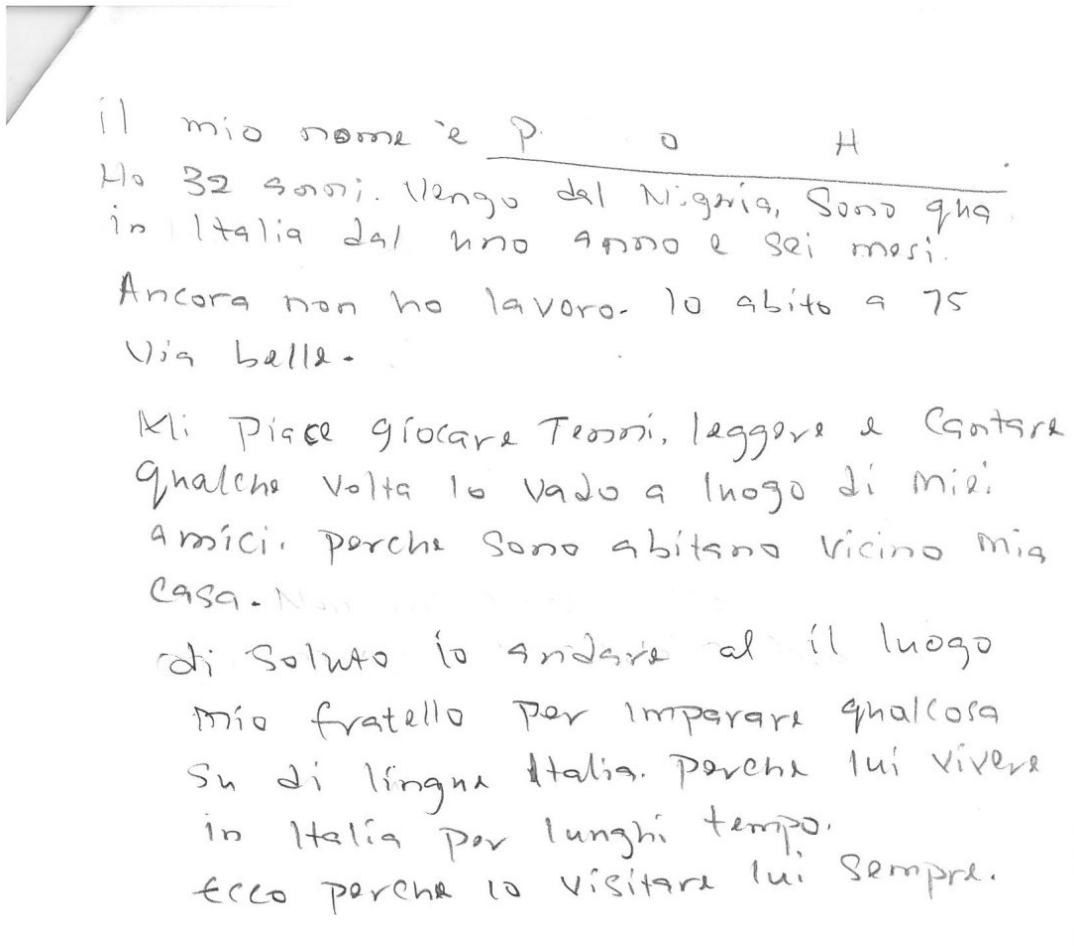 il mio nome è P. O H.
Ho 32 anni. Vengo dal Nigeria, Sono qua
in Italia dal uno anno e sei mesi.
Ancora non ho lavoro. Io abito a 75
Via belle.
Mi Piace giocare Tenni, leggere e Cantare
qualche volta Io vado a luogo di miei
amici. perche Sono abitano vicino mia
casa.
di Soluto io andare al il luogo
mio fratello per imparare qualcosa
Su di lingue Italia. perche lui vivere
in Italia per lunghi tempo.
Ecco perche io visitare lui Sempre.